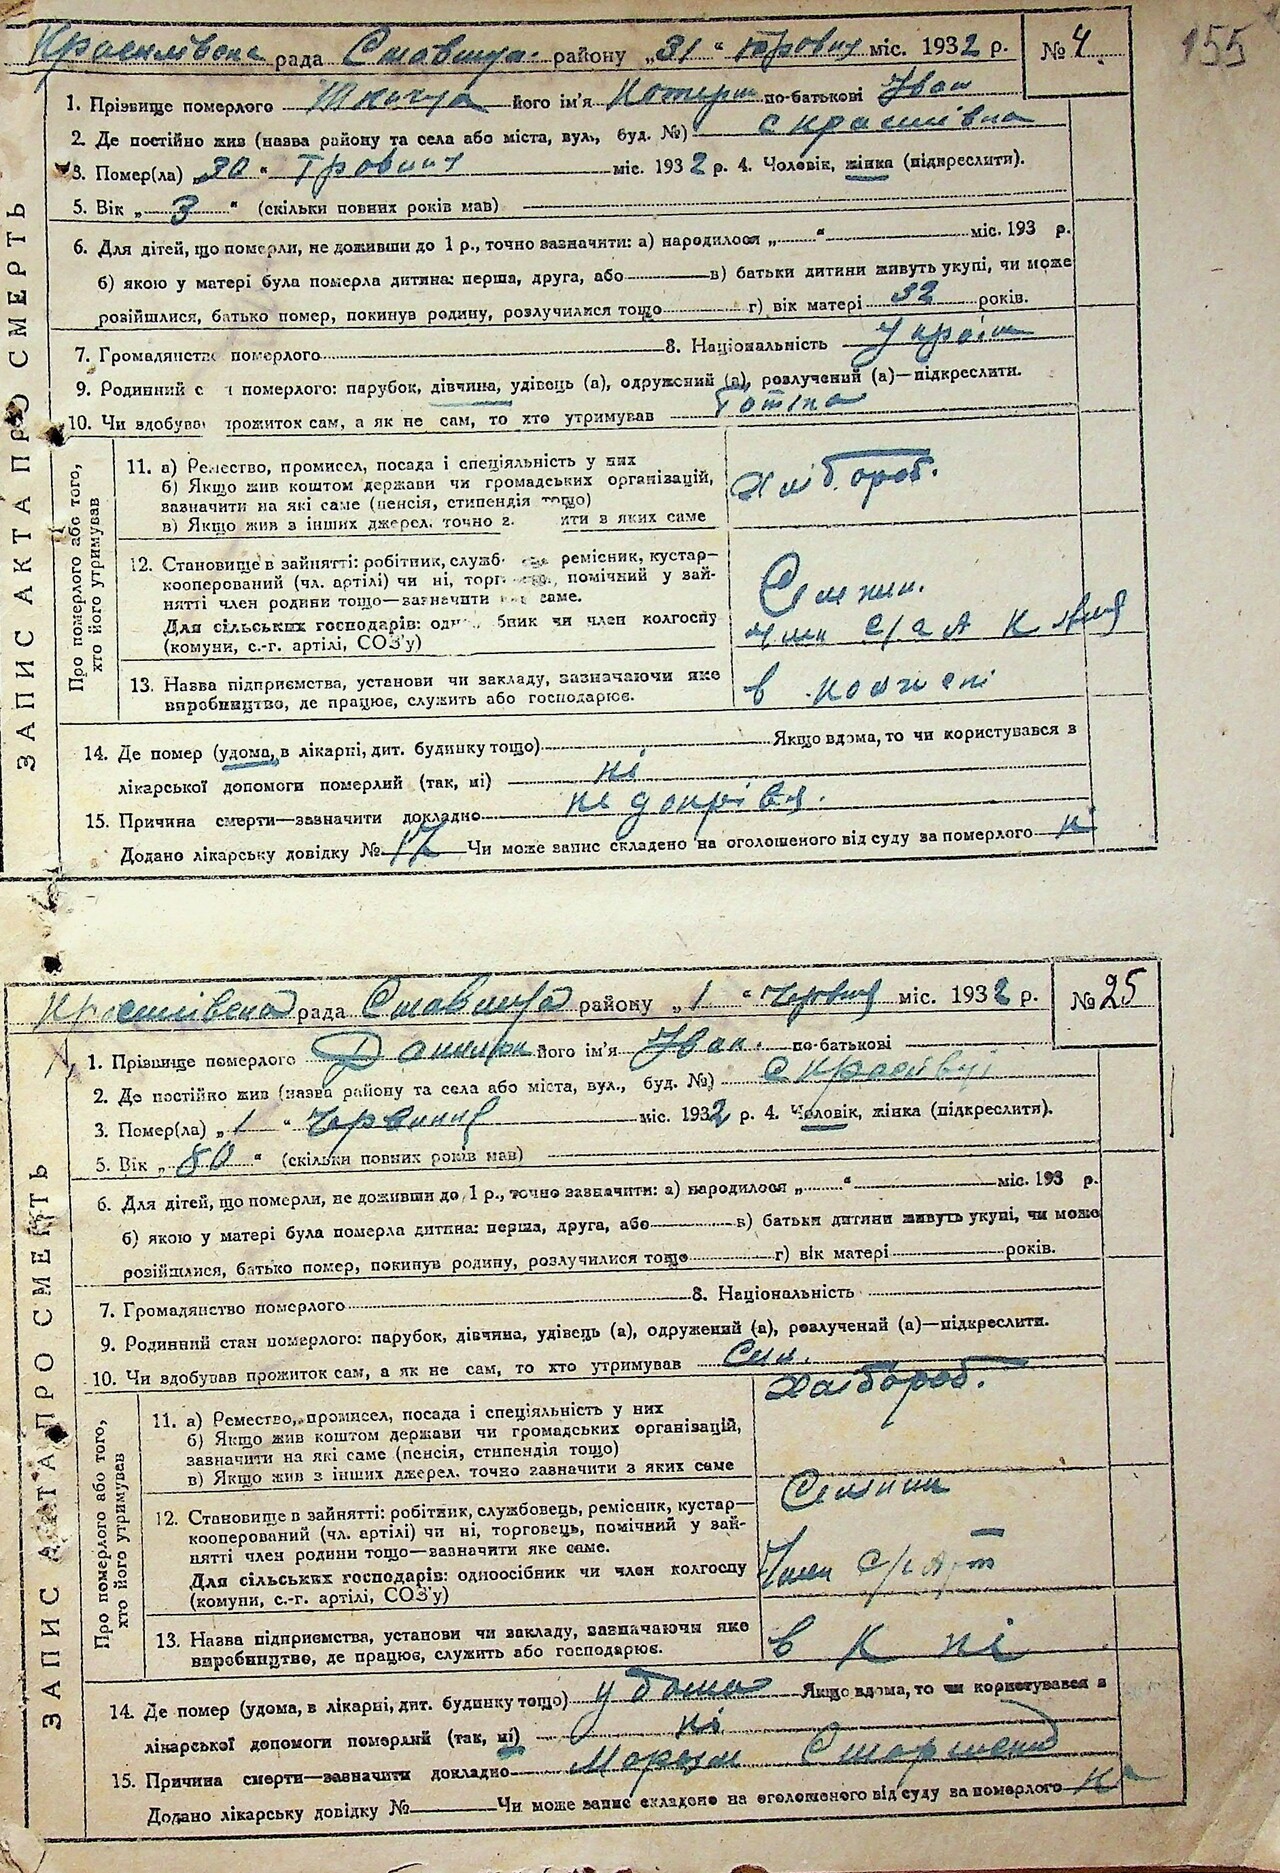 155
рада Ставища району „31“ міс. 1932 р. №4
1. Прізвище померлого його ім'я по-батькові Іван
2. Де постійно жив (назва району та села або міста, вул., буд. №) с красилівка
3. Помер(ла) „30“ міс. 1932 р. 4. Чоловік, жінка (підкреслити).
5. Вік „3“ (скільки повних років мав)
6. Для дітей, що померли, не доживши до 1 р., точно зазначити: а) народилося „ “ міс. 193 р.
б) якою у матері була померла дитина: перша, друга, або в) батьки дитини живуть укупі, чи може
розійшлися, батько помер, покинув родину, розлучилися тощо г) вік матері 32 років.
7. Громадянство померлого 8. Національність україн
9. Родинний с н померлого: парубок, дівчина, удівець (а), одружений (а), розлучений (а)—підкреслити.
10. Чи здобував прожиток сам, а як не сам, то хто утримував
ЗАПИС АКТА ПРО СМЕРТЬ
Про померлого або того, хто його утримував
11. а) Ремество, промисел, посада і спеціяльність у них
б) Якщо жив коштом держави чи громадських організацій,
зазначити на які саме (пенсія, стипендія тощо)
в) Якщо жив з інших джерел, точно з ити з яких саме
Хліборроб.
12. Становище в зайнятті: робітник, служб ремісник, кустар—
кооперований (чл. артілі) чи ні, торг помічний у зай-
нятті член родини тощо—зазначити яке саме.
Для сільських господарів: одно бник чи член колгоспу
(комуни, с.-г. артілі, СОЗ'у)
Селянин.
член с/г
13. Назва підприємства, установи чи закладу, зазначаючи яке
виробництво, де працює, служить або господарює.
в колгоспі
14. Де помер (удома, в лікарні, дит. будинку тощо) Якщо вдома, то чи користувався з
лікарської допомоги померлий (так, ні) ні
15. Причина смерти—зазначити докладно недокрівя.
Додано лікарську довідку № 17 Чи може запис складено на оголошеного від суду за померлого ні
рада Ставища району „1“ червня міс. 1932 р. №25
1. Прізвище померлого його ім'я Іван. по-батькові
2. Де постійно жив (назва району та села або міста, вул., буд. №) с
3. Помер(ла) „1“ Червня міс. 1932 р. 4. Чоловік, жінка (підкреслити).
5. Вік „80“ (скільки повних років мав)
6. Для дітей, що померли, не доживши до 1 р., точно зазначити: а) народилося „ “ міс. 193 р.
б) якою у матері була померла дитина: перша, друга, або в) батьки дитини живуть укупі, чи може
розійшлися, батько помер, покинув родину, розлучилися тощо г) вік матері років.
7. Громадянство померлого 8. Національність
9. Родинний стан померлого: парубок, дівчина, удівець (а), одружений (а), розлучений (а)—підкреслити.
10. Чи здобував прожиток сам, а як не сам, то хто утримував
ЗАПИС АКТА ПРО СМЕРТЬ
Про померлого або того, хто його утримував
11. а) Ремество, промисел, посада і спеціяльність у них
б) Якщо жив коштом держави чи громадських організацій,
зазначити на які саме (пенсія, стипендія тощо)
в) Якщо жив з інших джерел, точно зазначити з яких саме
Хлібороб.
12. Становище в зайнятті: робітник, службовець, ремісник, кустар—
кооперований (чл. артілі) чи ні, торговець, помічний у зай-
нятті член родини тощо—зазначити яке саме.
Для сільських господарів: одноосібник чи член колгоспу
(комуни, с.-г. артілі, СОЗ'у)
Селянин
Член с/г
13. Назва підприємства, установи чи закладу, зазначаючи яке
виробництво, де працює, служить або господарює.
в к пі
14. Де помер (удома, в лікарні, дит. будинку тощо) у дома Якщо вдома, то чи користувався з
лікарської допомоги померлий (так, ні) ні
15. Причина смерти—зазначити докладно
Додано лікарську довідку № Чи може запис складено на оголошеного від суду за померлого ні